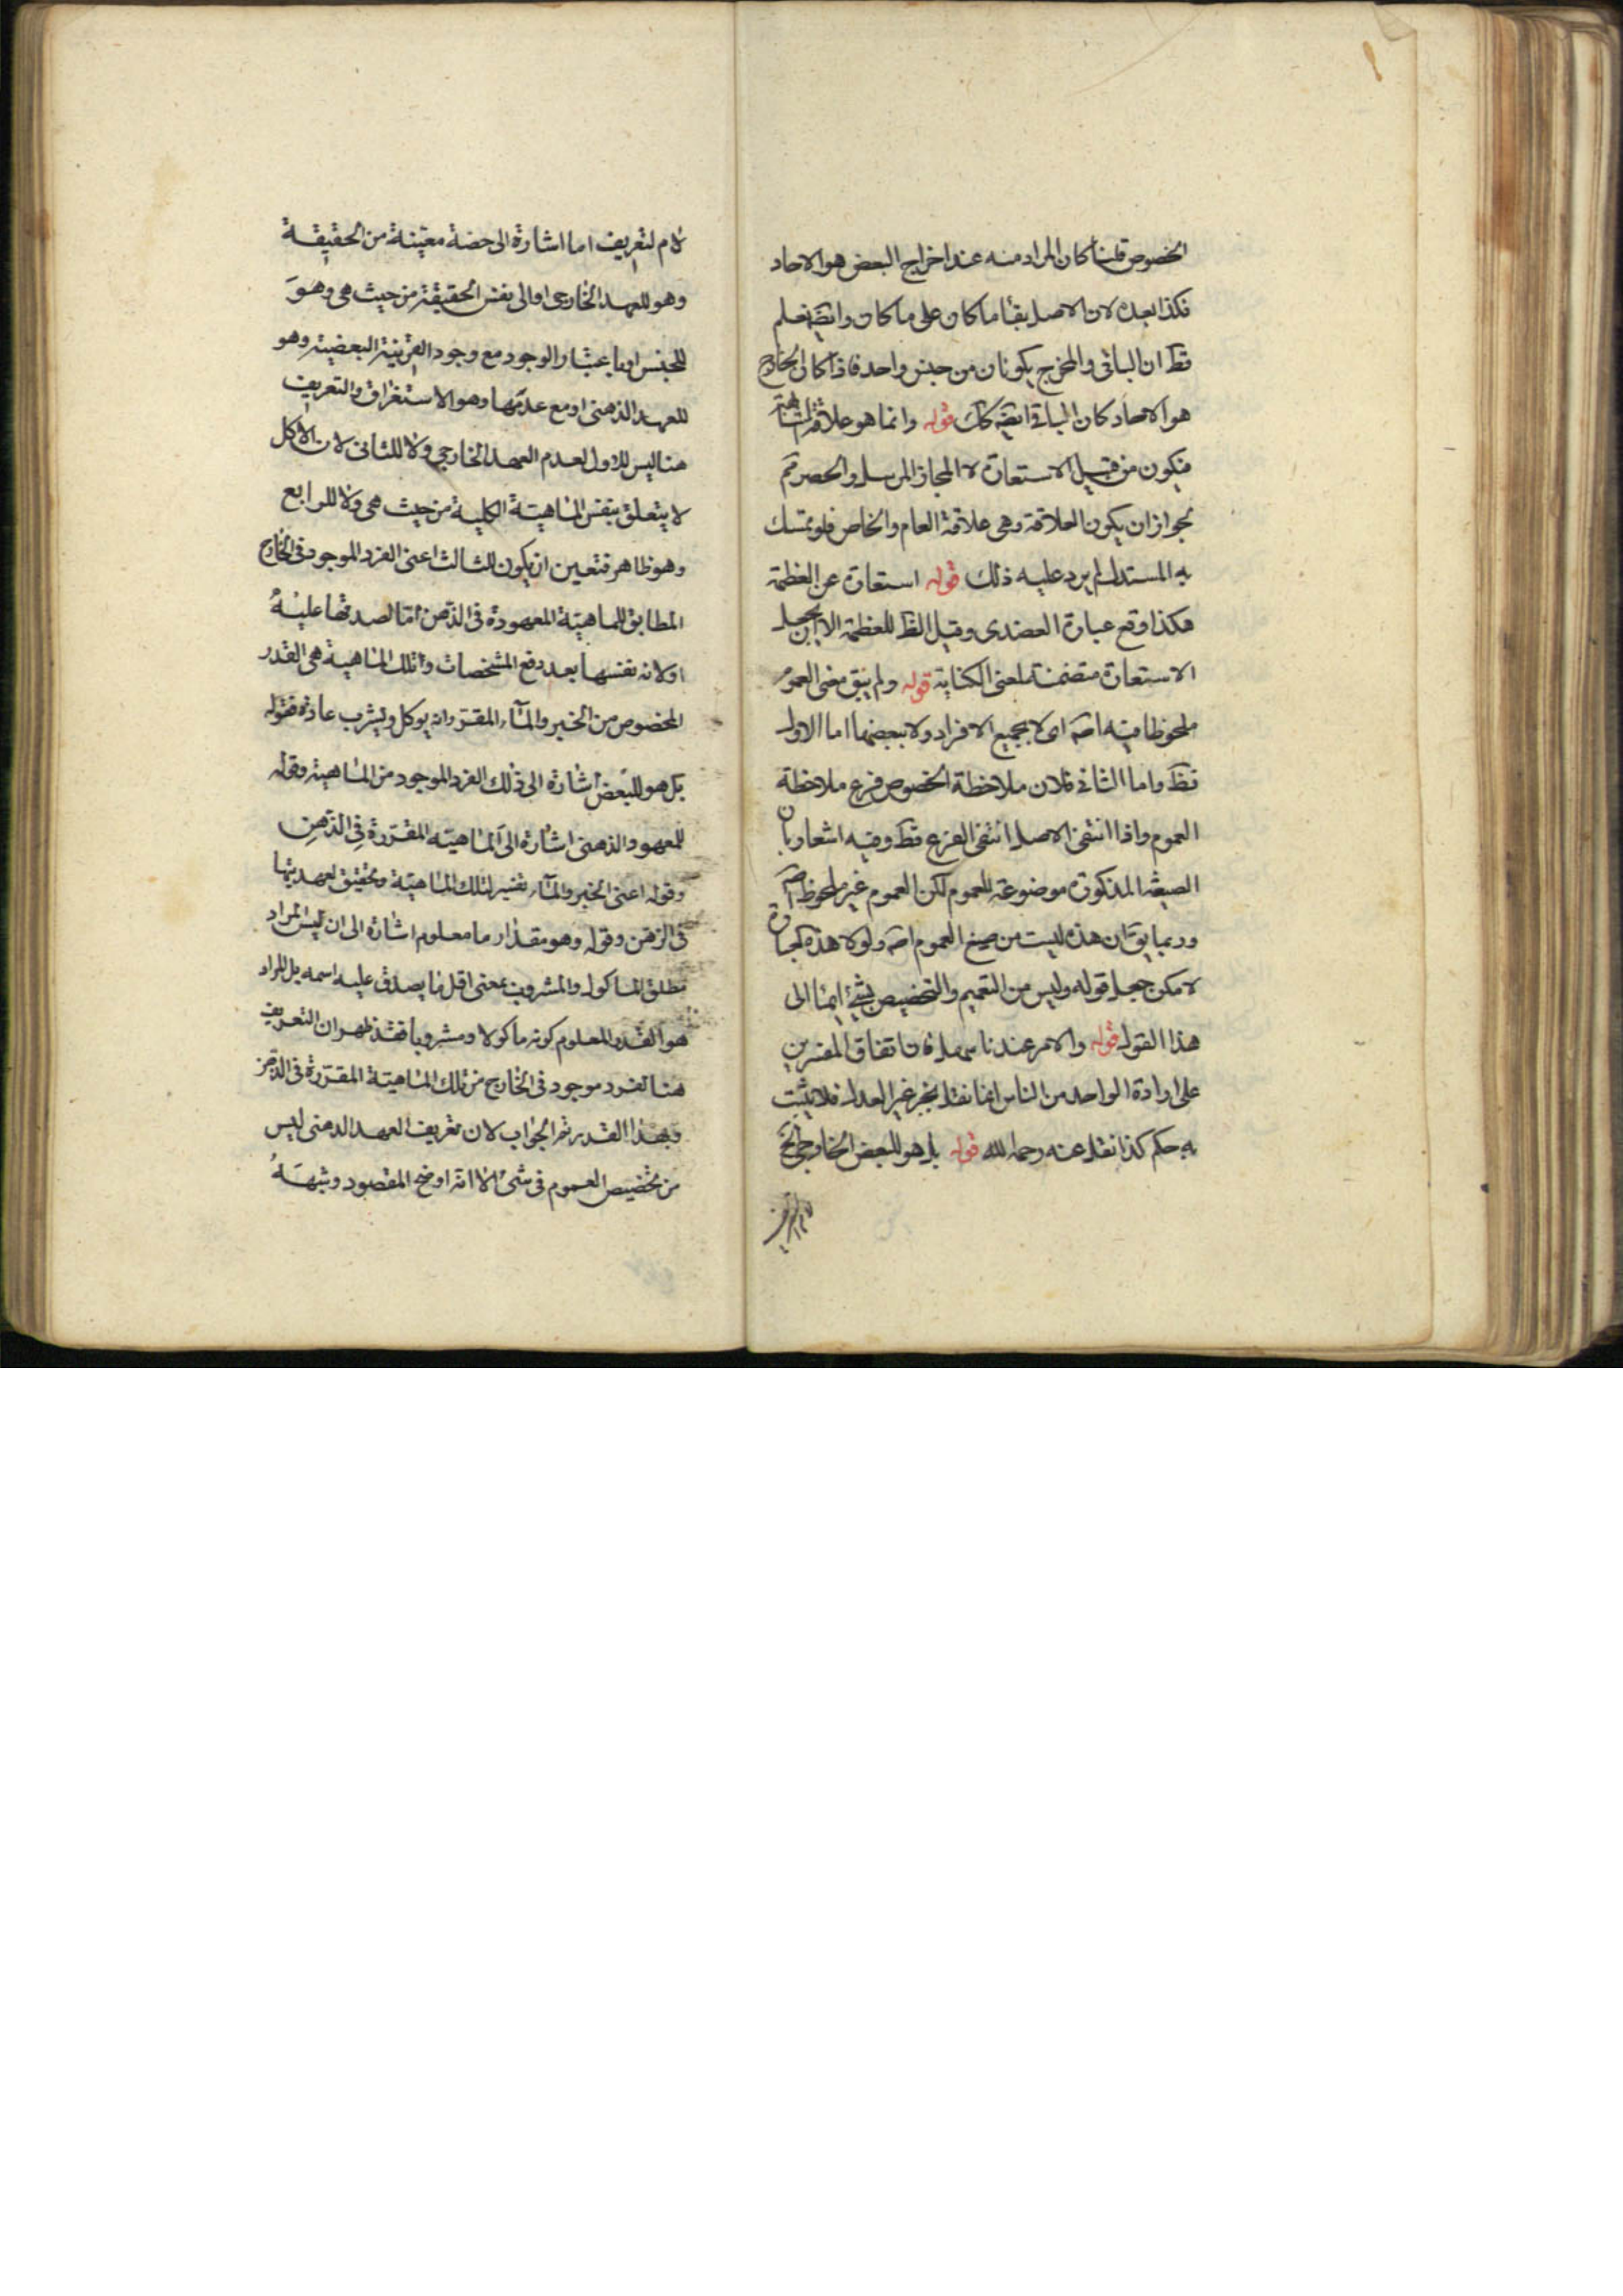 الخصوص قلنا كان المراد منه عند اخراج البعض هو الاحاد
فكذا بعده لان الاصل بقاء ما كان على ما كان وايضا نعلم
قطعا ان الباقى والمخرج يكونان من جنس واحد فاذا كان الخارج
هو الاحاد كان الباقى ايضا كك قوله وانما هو علاقة المشابهة
فيكون من قبيل الاستعارة لا المجاز المرسل والحصر مم
لجواز ان يكون العلاقة وهى علاقة العام والخاص فلو تمسك
به المستدل لم يرد عليه ذلك قوله استعارة عن العظمة
هكذا وقع عبارة العضدى وقيل الظ للعظمة الا ان يجعل
الاستعارة متضمنة لمعنى الكناية قوله ولم يبق معنى العموم
ملحوظا فيه اصلا اى لا بجميع الافراد ولا ببعضها اما الاول
فظ واما الثانى فلان ملاحظة الخصوص فرع ملاحظة
العموم واذا انتفى الاصل انتفى الفرع قط وفيه اشعار بان
الصيغة المذكورة موضوعة للعموم لكن العموم غير ملحوظ اصلا
وربما يق ان هذه ليست من صيغ العموم اصلا ولولا هذه العبارة
لامكن جعل قوله وليس من التعميم والتخصيص بشئ ايماء الى
هذا القول قوله والامر عندنا سهل فان اتفاق المفسرين
على ارادة الواحد من الناس انما نقل بخبر غير العدل فلا يثبت
به حكم كذا نقل عنه رحمه الله قوله بل هو للبعض الخارجى الخ
لام التعريف اما اشارة الى حصة معينة من الحقيقة
وهو للعهد الخارجى او الى نفس الحقيقة من حيث هى وهو
للجنس او باعتبار الوجود مع وجود القرينة البعضية وهو
للعهد الذهنى او مع عدمها وهو الاستغراق والتعريف
هنا ليس للاول لعدم العهد الخارجى ولا للثانى لان الاكل
لا يتعلق بنفس الماهية الكلية من حيث هى ولا للرابع
وهو ظاهر فتعين ان يكون للثالث اعنى الفرد الموجود فى الخارج
المطابق للماهية المعهودة فى الذهن اما لصدقها عليه
او لانه نفسها بعد دفع المشخصات وتلك الماهية هى القدر
المخصوص من الخبز والماء المقرر انه يوكل ويشرب عادة فقوله
بل هو للبعض اشارة الى ذلك الفرد الموجود من الماهية وقوله
للمعهود الذهنى اشارة الى الماهية المقررة فى الذهن
وقوله اعنى الخبز والماء تفسير لتلك الماهية وتحقيق لعهديتها
فى الذهن وقوله وهو مقدار ما معلوم اشارة الى ان ليس المراد
مطلق الماكول والمشروب بمعنى اقل ما يصدق عليه اسمه بل المراد
هو القدر المعلوم كونه ماكولا ومشروبا فقد ظهر ان التعريف
هنا لفرد موجود فى الخارج من تلك الماهية المقررة فى الذهن
وبهذا القدر تم الجواب لان تعريف العهد الذهنى ليس
من تخصيص العموم فى شئ الا انه اوضح المقصود وشبهه